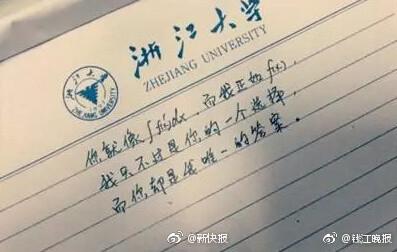 浙江大学
ZHEJIANG UNIVERSITY
你就像∫f(x)dx，而我正如f(x)，
我只不过是你的一个选择，
而你却是我唯一的答案。
@新快报
@钱江晚报